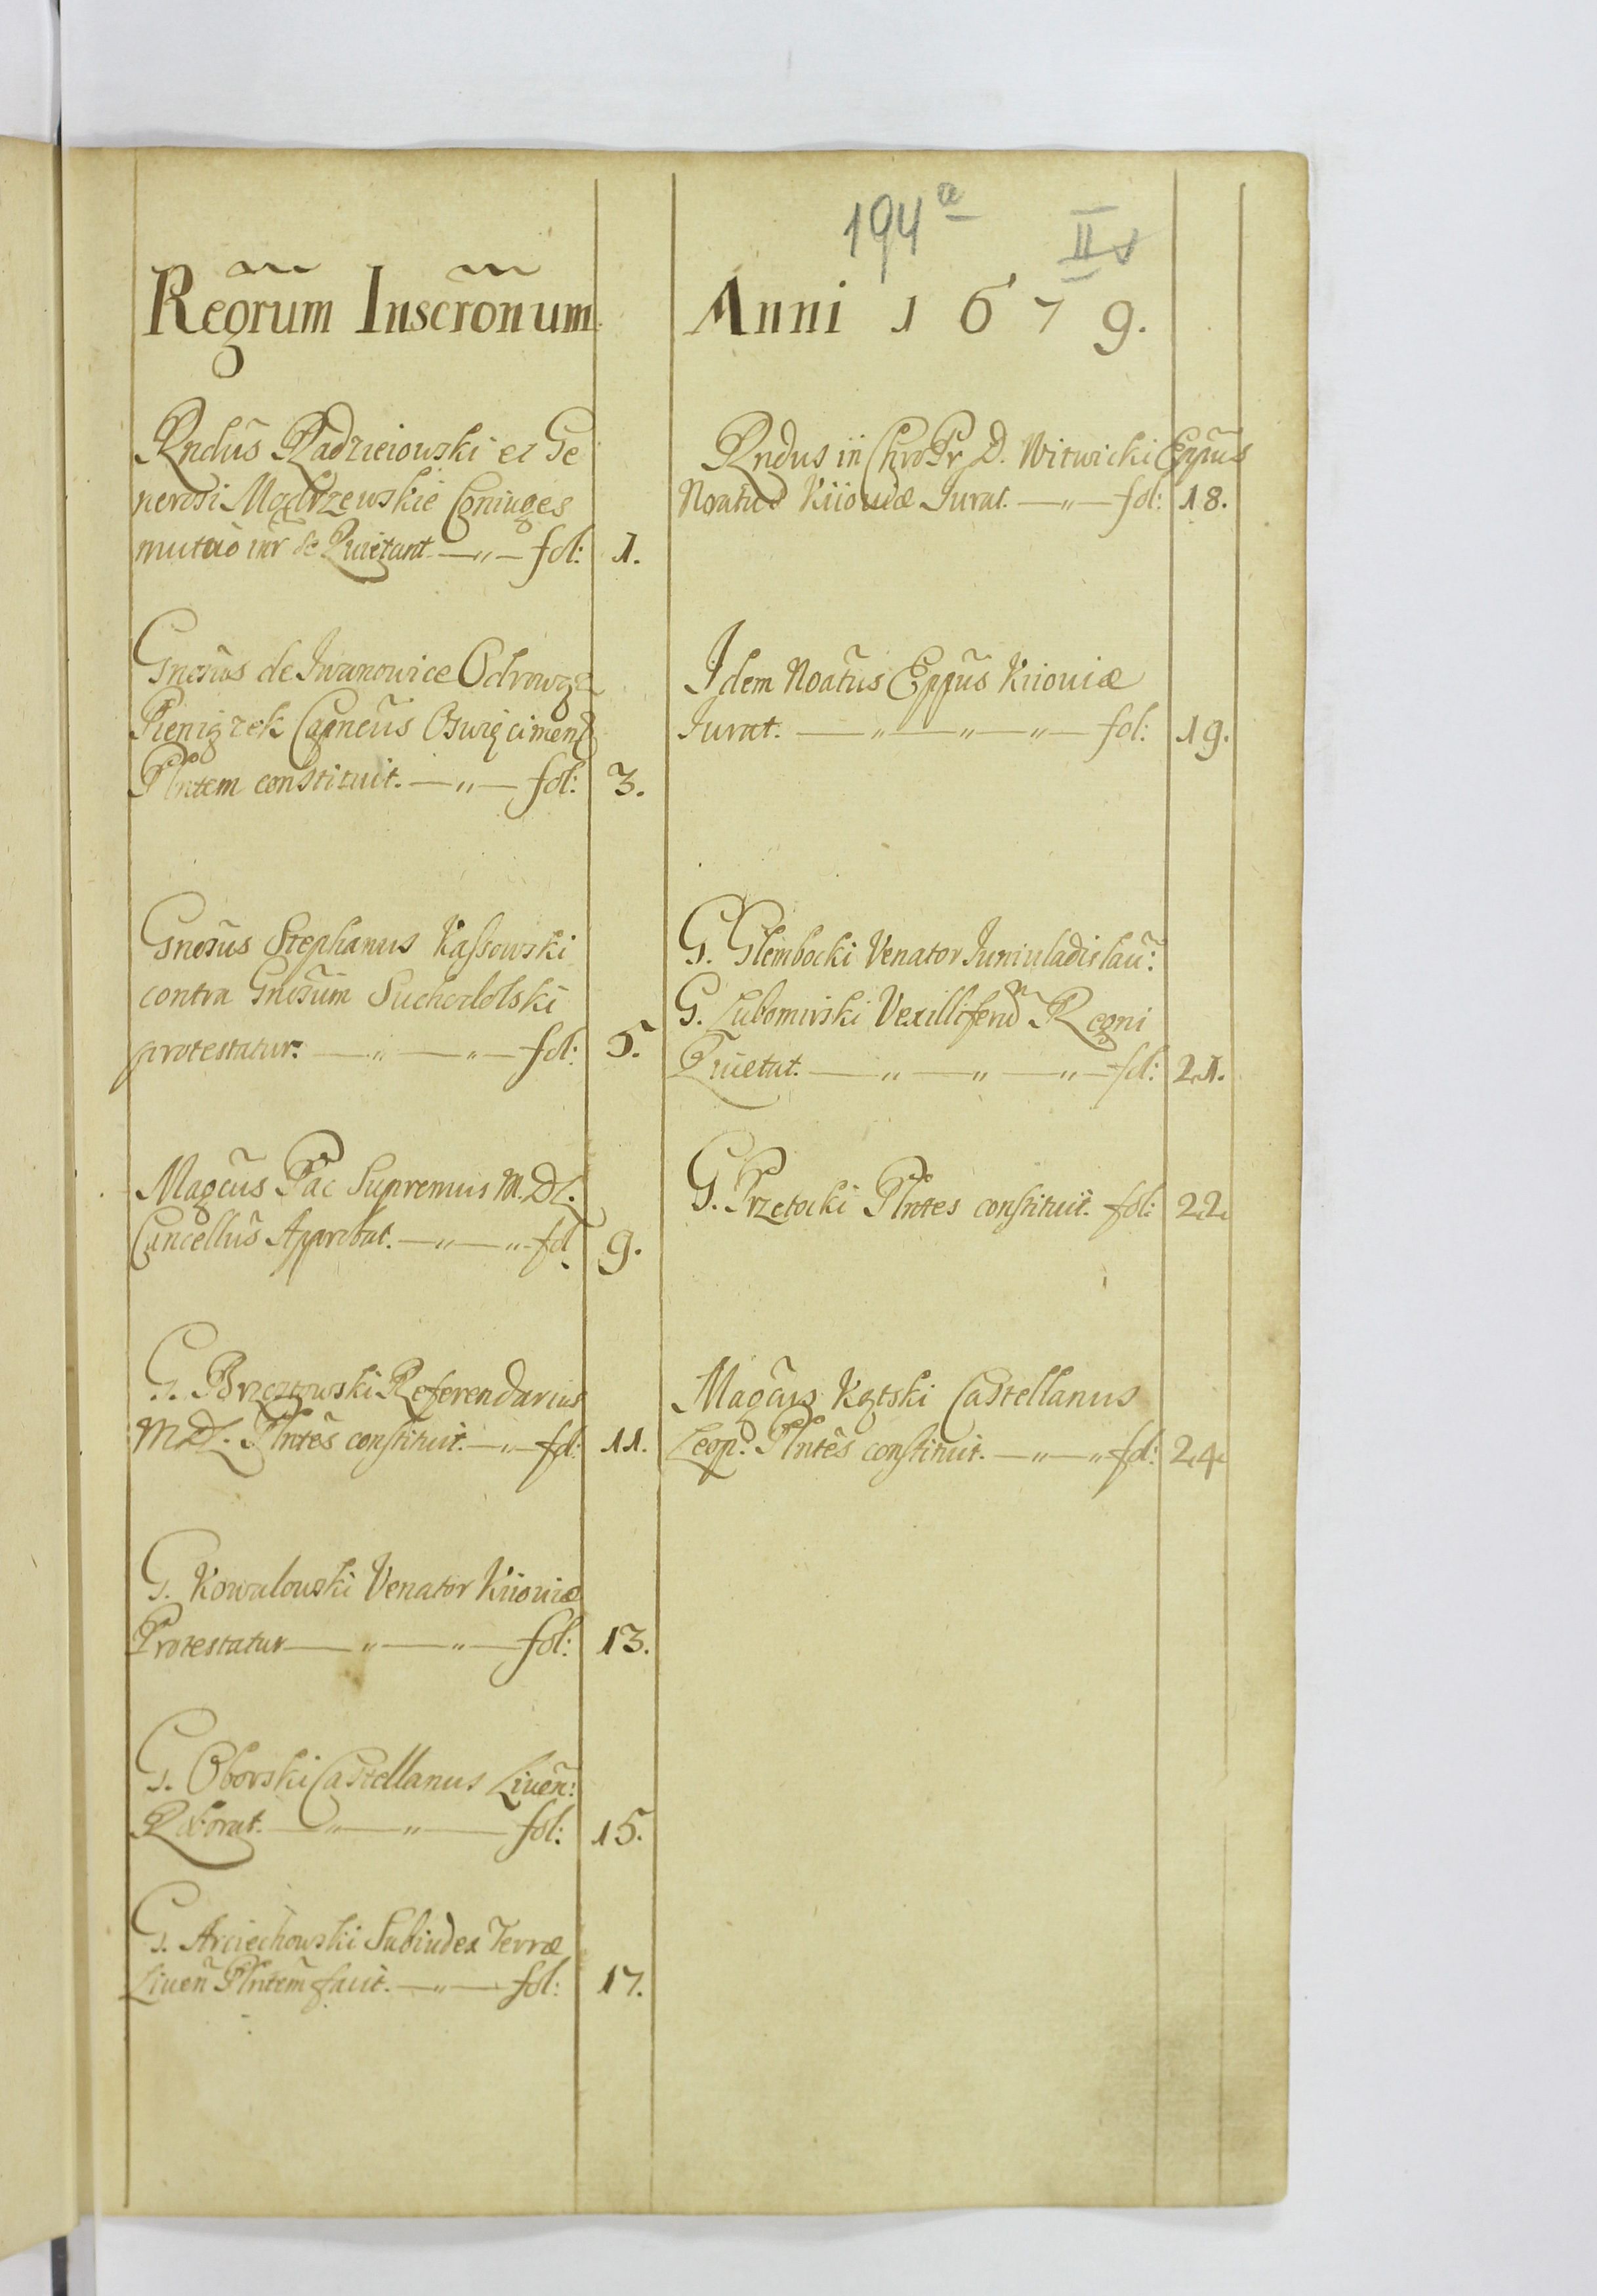 194a
II
Regrum Inscronum
Anni 1679.
Rndus Radzieiowski et Ge
nerosi Mądrzewskie Coniuges
mutuo inr se Quietant —„— fol: 1.
Gnosus de Iwanowice Odrowąz
Pieniązek Capneus Oswięcimens
Plntem constituit. —„— fol: 3.
Gnosus Stephanus Kassowski
contra Gnosum Suchodolski
protestatur. —„—„— fol: 5.
Magcus Pac Supremus M.D.L.
Cancellus Approbat. —„—„ fol 9.
G. Brzozowski Referendarius
MDL. Plntes constituit. —„— fol: 11.
G. Kowalowski Venator Kiioviæ
Protestatur —„—„— fol: 13.
G. Oborski Castellanus Liven:
Roborat. —„—„— fol: 15.
G. Arciechowski Subiudex Terræ
Liven Plntem facit. —„— fol: 17.
Rndus in Chro Pr D. Witwicki Eppus
Noatus Kiioviæ Jurat. —„— fol: 18.
Idem Noatus Eppus Kiioviæ
Jurat. —„—„—„— fol: 19.
G. Glembocki Venator Juniuladislau:
G. Lubomirski Vexilliferum Regni
Quietat. —„—„—„— fol: 21.
G. Przetocki Plntes constituit. fol: 22.
Magcus Kątski Castellanus
Leop. Plntes constituit. —„—„ fol: 24.